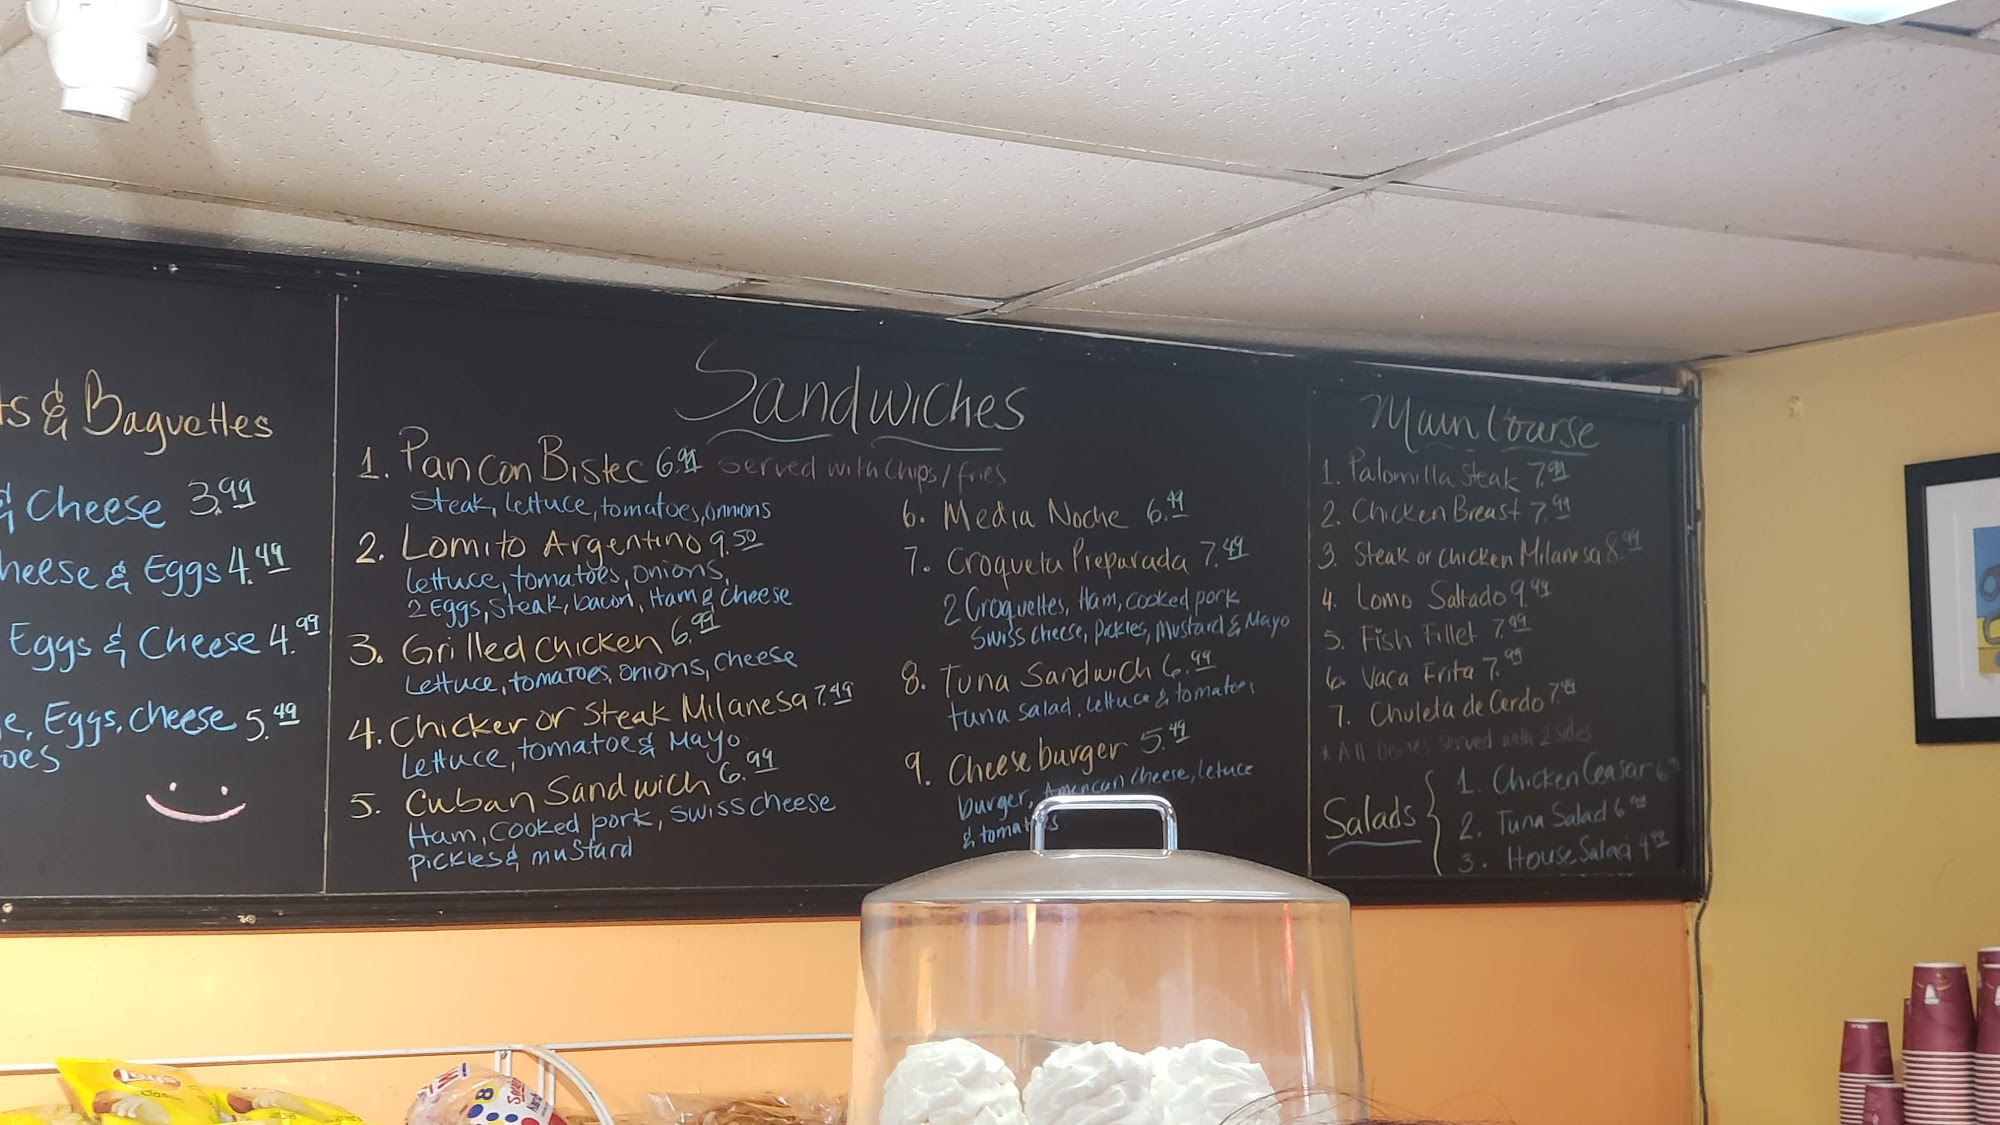 ts & Baguettes
& Cheese 3.99
heese & Eggs 4.49
Eggs & Cheese 4.99
e, Eggs, Cheese 5.49
oes
Sandwiches
1. Pan Con Bistec 6.99 Served with Chips/fries
Steak, lettuce, tomatoes, onnions
2. Lomito Argentino 9.50
lettuce, tomatoes, onions,
2 Eggs, Steak, bacon, Ham & Cheese
3. Grilled Chicken 6.99
Lettuce, tomatoes, onions, cheese
4. Chicken or Steak Milanesa 7.49
Lettuce, tomatoe & Mayo
5. Cuban Sandwich 6.99
Ham, cooked pork, swiss cheese
pickles & mustard
6. Media Noche 6.49
7. Croqueta Preparada 7.49
2 Croquettes, Ham, cooked pork
Swiss cheese, pickles, Mustard & Mayo
8. Tuna Sandwich 6.99
tuna salad, lettuce & tomatoes
9. Cheese burger 5.49
burger, American cheese, letuce
& tomatoes
Main Course
1. Palomilla Steak 7.99
2. Chicken Breast 7.99
3. Steak or Chicken Milanesa 8.99
4. Lomo Saltado 9.49
5. Fish Fillet 7.99
6. Vaca Frita 7.99
7. Chuleta de Cerdo 7.49
* All Dishes Served with 2 sides
Salads
1. Chicken Ceasar
2. Tuna Salad 6.99
3. House Salad 4.99